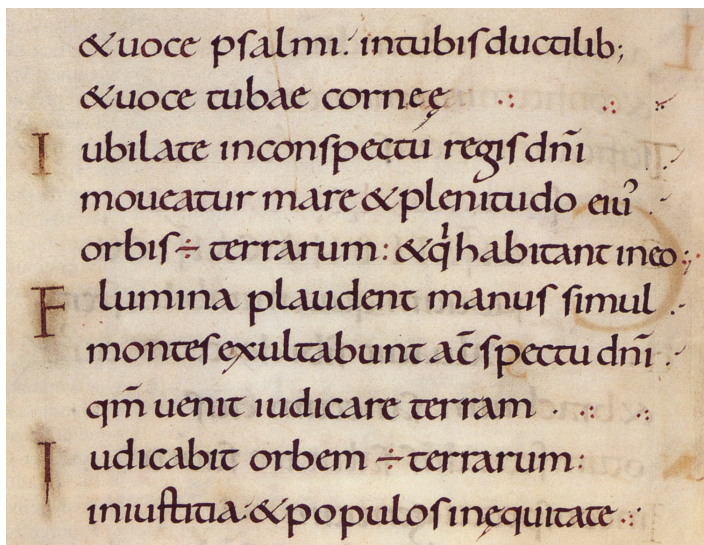 &uoce psalmi. intubis ductilib;
&uoce tubae corneę
Iubilate inconspectu regis dn̄i
moueatur mare &plenitudo eiuʾ
orbis ÷ terrarum: &qͥ habitant ineo
Flumina plaudent manus simul
montes exultabunt ac̄spectu dn̄i
qm̄ uenit iudicare terram
Iudicabit orbem ÷ terrarum:
iniustitia·&populos inęquitate